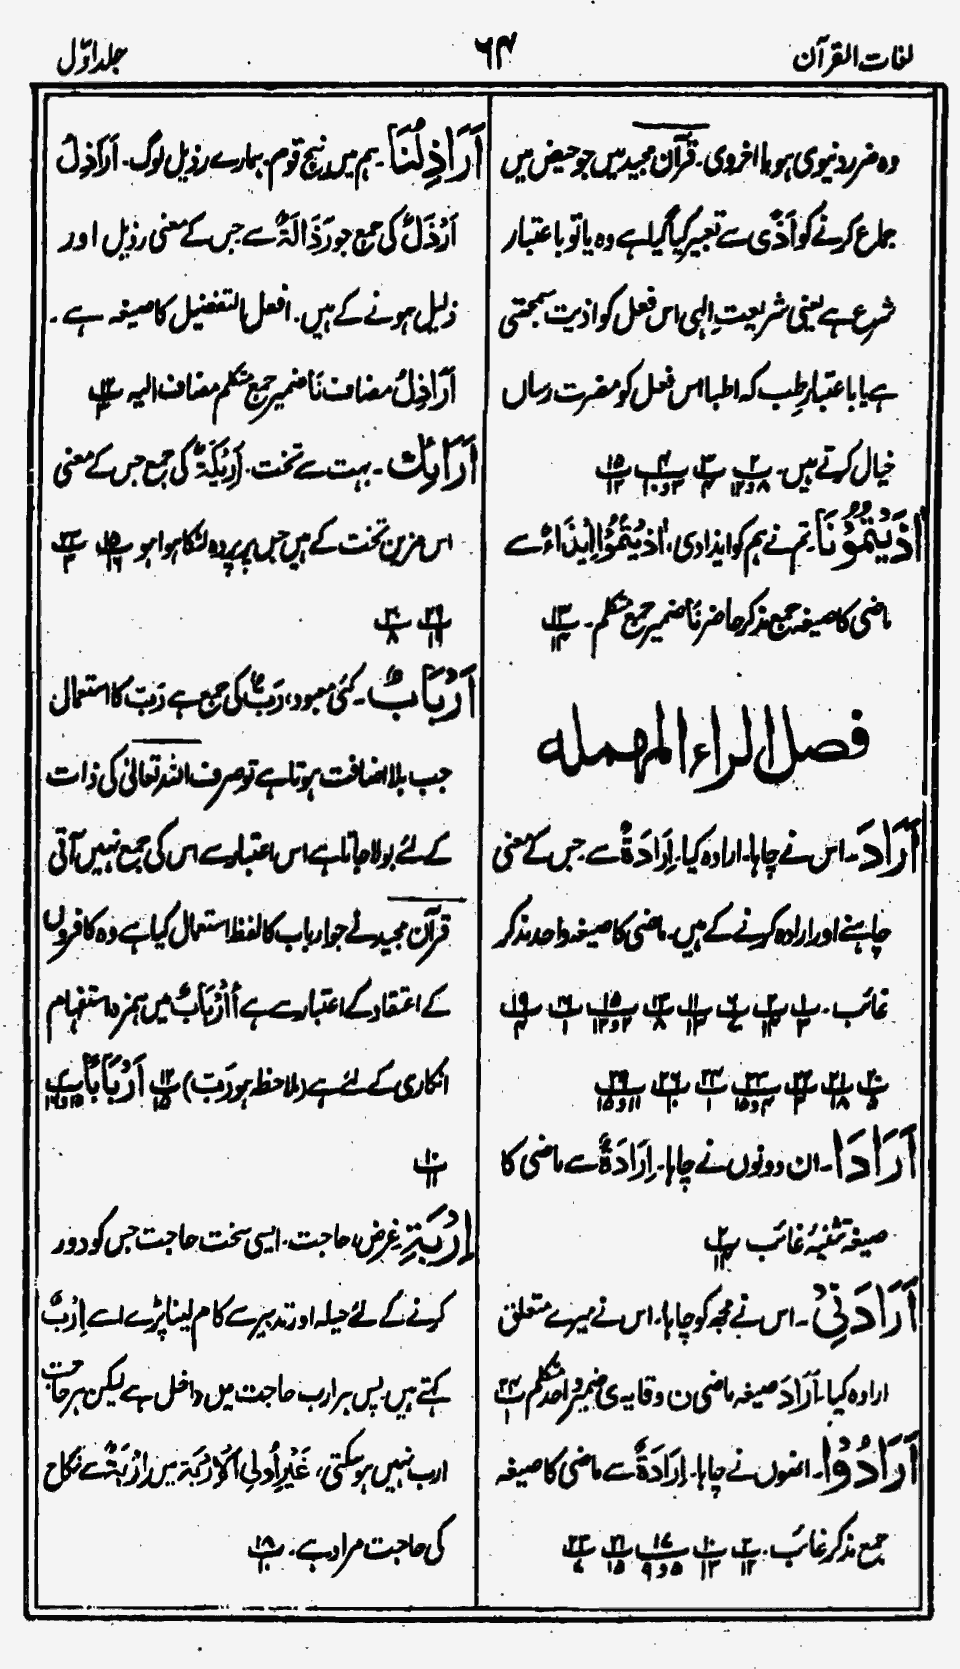 لغات القرآن
۶۴
جلد اوّل
وہ ضرر دنیوی ہو یا اخروی۔ قرآن مجید میں جو حیض میں
جماع کرنے کو اَذًی سے تعبیر کیا گیا ہے وہ یا تو باعتبار
شرع ہے یعنی شریعتِ الٰہی اس فعل کو اذیت سمجھتی
ہے یا باعتبارِ طب کہ اطبا اس فعل کو مضرت رساں
خیال کرتے ہیں۔ پ۲ ۸و۱۲ پ۳ ۴ پ۴ ۳و۱۰ پ۱۵ ۱۲
اٰذَیْتُمُوْنَا۔ تم نے ہم کو ایذا دی، اٰذَیْتُمُوْا اِیْذَاءٌ سے
ماضی کا صیغہ جمع مذکر حاضر نَا ضمیر جمع متکلم۔ پ۱۳ ۱۴
فصل الراء المهمله
اَرَادَ۔ اس نے چاہا۔ ارادہ کیا۔ اِرَادَۃٌ سے۔ جس کے معنی
چاہنے اور ارادہ کرنے کے ہیں۔ ماضی کا صیغہ واحد مذکر
غائب۔ پ۱ ۳ پ۲ ۱۴ پ۶ ۷ پ۱۱ ۱۲ پ۱۳ ۸ پ۱۵ ۲و۱۲ پ۱۶ ۱ پ۱۹ ۴
پ۲۰ ۵ پ۲۱ ۱۸ پ۲۲ ۳ پ۲۳ ۴و۱۵ پ۲۴ ۱ پ۲۶ ۱۰ پ۲۹ ۱۱و۱۵
اَرَادَا۔ ان دونوں نے چاہا۔ اِرَادَۃٌ سے ماضی کا
صیغہ تثنیہ غائب پ۲ ۱۴
اَرَادَنِیْ۔ اس نے مجھ کو چاہا۔ اس نے میرے متعلق
ارادہ کیا۔ اَرَادَ صیغہ ماضی ن وقایہ ی ضمیر واحد متکلم پ۲۴ ۱
اَرَادُوْا۔ انھوں نے چاہا۔ اِرَادَۃٌ سے ماضی کا صیغہ
جمع مذکر غائب۔ پ۲ ۱۲ پ۱۰ ۱۳ پ۱۷ ۵و۹ پ۲۱ ۱۵ پ۲۳ ۷
اَرَاذِلُنَا۔ ہم میں نیچ قوم۔ ہمارے رذیل لوگ۔ اَرَاذِلُ
اَرْذَلُ کی جمع جو رَذَالَۃٌ سے جس کے معنی رذیل اور
ذلیل ہونے کے ہیں۔ افعل التفضیل کا صیغہ ہے۔
اَرَاذِلُ مضاف نَا ضمیر جمع متکلم مضاف الیہ پ۱۲ ۳
اَرَائِكُ۔ بہت سے تخت۔ اَرِیْکَۃٌ کی جمع جس کے معنی
اس مزین تخت کے ہیں جس پر پردہ لٹکا ہوا ہو پ۱۵ ۱۶ پ۲۳ ۳
پ۲۹ ۱۹ پ۳۰ ۸
اَرْبَابٌ۔ کئی معبود، رَبٌّ کی جمع ہے رَبّ کا استعمال
جب بلا اضافت ہوتا ہے تو صرف اللہ تعالیٰ کی ذات
کے لئے بولا جاتا ہے اس اعتبار سے اس کی جمع نہیں آتی
قرآن مجید نے جو ارباب کا لفظ استعمال کیا ہے وہ کافروں
کے اعتقاد کے اعتبار سے ہے أَأَرْبَابٌ میں ہمزہ استفہام
انکاری کے لئے ہے (ملاحظہ ہو رَبّ) پ۱۲ ۱۵ اَرْبَابًا پ۳ ۱۵و۱۶
پ۱۰ ۱۱
اِرْبَۃِ غرض، حاجت۔ ایسی سخت حاجت جس کو دور
کرنے کے لئے حیلہ اور تدبیر سے کام لینا پڑے اسے اِرْبٌ
کہتے ہیں۔ پس ہر ارب حاجت میں داخل ہے لیکن ہر حاجت
ارب نہیں ہو سکتی، غَیْرِ اُولِی الْاِرْبَۃِ میں اِرْبَۃٌ سے نکاح
کی حاجت مراد ہے۔ پ۱۸ ۱۰